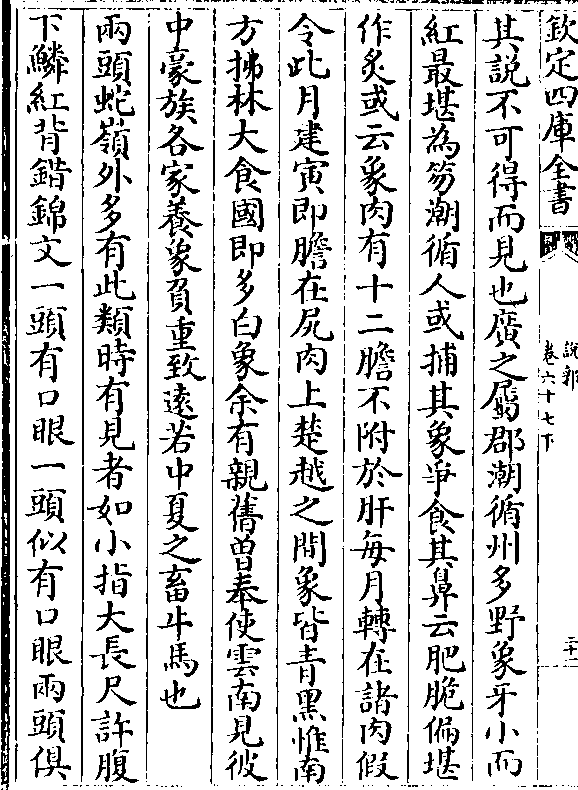 欽定四庫全書
說郛
卷六十七下
三十二
其說不可得而見也廣之屬郡潮循州多野象牙小而
紅最堪為笏潮循人或捕其象爭食其鼻云肥脆偏堪
作炙或云象肉有十二膽不附於肝每月轉在諸肉假
令此月建寅即膽在尻肉上楚越之間象皆青黑惟南
方拂林大食國即多白象余有親舊曽奉使雲南見彼
中豪族各家養象負重致逺若中夏之畜牛馬也
兩頭蛇嶺外多有此類時有見者如小指大長尺許腹
下鱗紅背錯錦文一頭有口眼一頭似有口眼兩頭俱